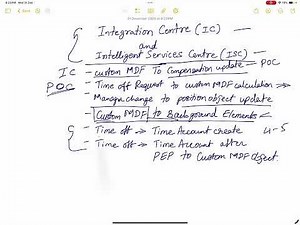 Integration Centre (IC)
and
Intelligent Services Centre (ISC)
IC - custom MDF To Compensation update - POC
POC - Time off Request to custom MDF calculation
- Manager change to position object update
- Custom MDF to Background Elements
- Time off → Time Account create 4-5
- Time off → Time Account after
PEP to Custom MDF object.